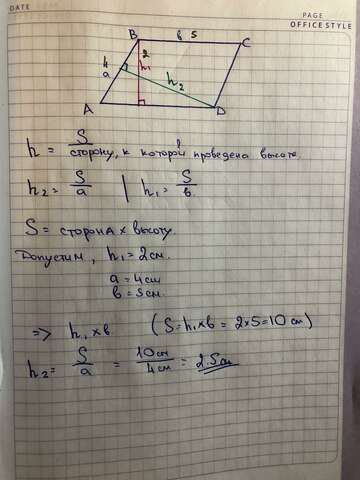 DATE
PAGE
OFFICE STYLE
B 2 в 5 C
4
a h₁ h₂
A D
h = S / сторону, к которой проведена высота.
h₂ = S/a | h₁ = S/в.
S = сторона × высоту.
Допустим, h₁ = 2 см.
a = 4 см
в = 5 см.
=> h₁ × в. (S = h₁ × в = 2 × 5 = 10 см)
h₂ = S/a = 10 см/4 см = 2.5 см